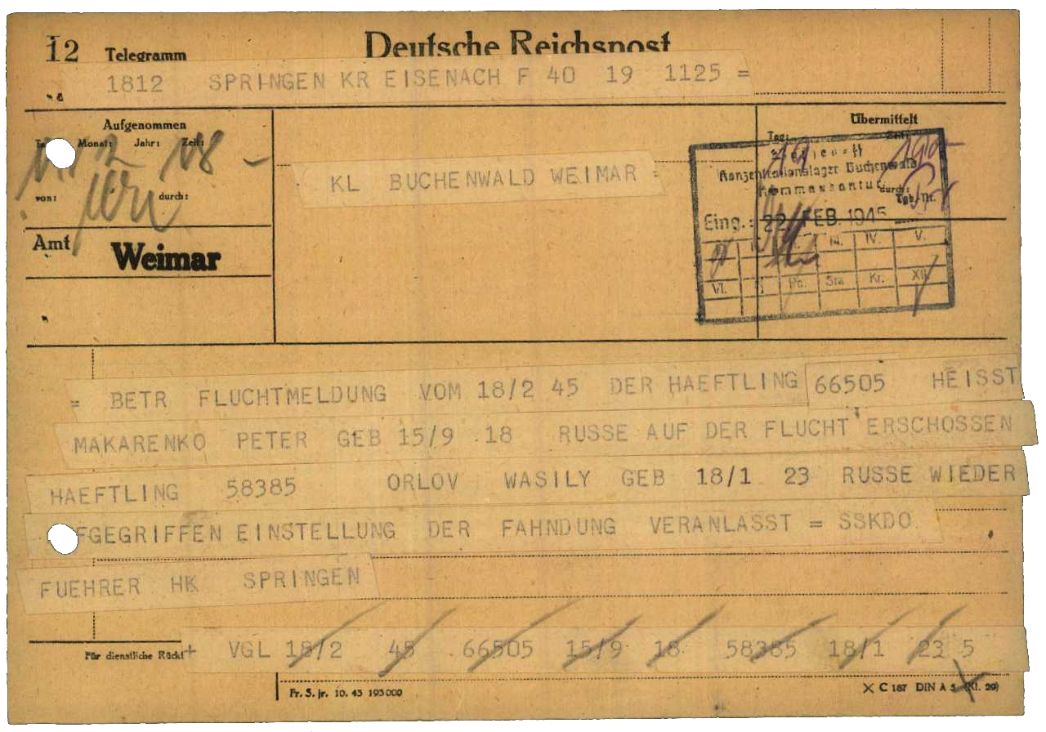 12 Telegramm Deutsche Reichspost
1812 SPRINGEN KR EISENACH F 40 19 1125 =
Aufgenommen
Monat: Jahr: Zeit:
von: durch:
Amt Weimar
KL BUCHENWALD WEIMAR =
Übermittelt
Tag: Zeit:
Konzentrationslager Buchenwald
Kommandantur
durch:
Eing.: 22. FEB. 1945
III. IV. V.
VI. Kr. XII.
= BETR FLUCHTMELDUNG VOM 18/2 45 DER HAEFTLING 66505 HEISST
MAKARENKO PETER GEB 15/9 .18 RUSSE AUF DER FLUCHT ERSCHOSSEN
HAEFTLING 58385 ORLOV WASILY GEB 18/1 23 RUSSE WIEDER
FGEGRIFFEN EINSTELLUNG DER FAHNDUNG VERANLASST = SSKDO
FUEHRER HK SPRINGEN
Für dienstliche Rückf + VGL 18/2 45 66505 15/9 18 58385 18/1 23 5
Fr. S. jr. 10. 43 193000
X C 187 DIN A 5 (Kl. 29)